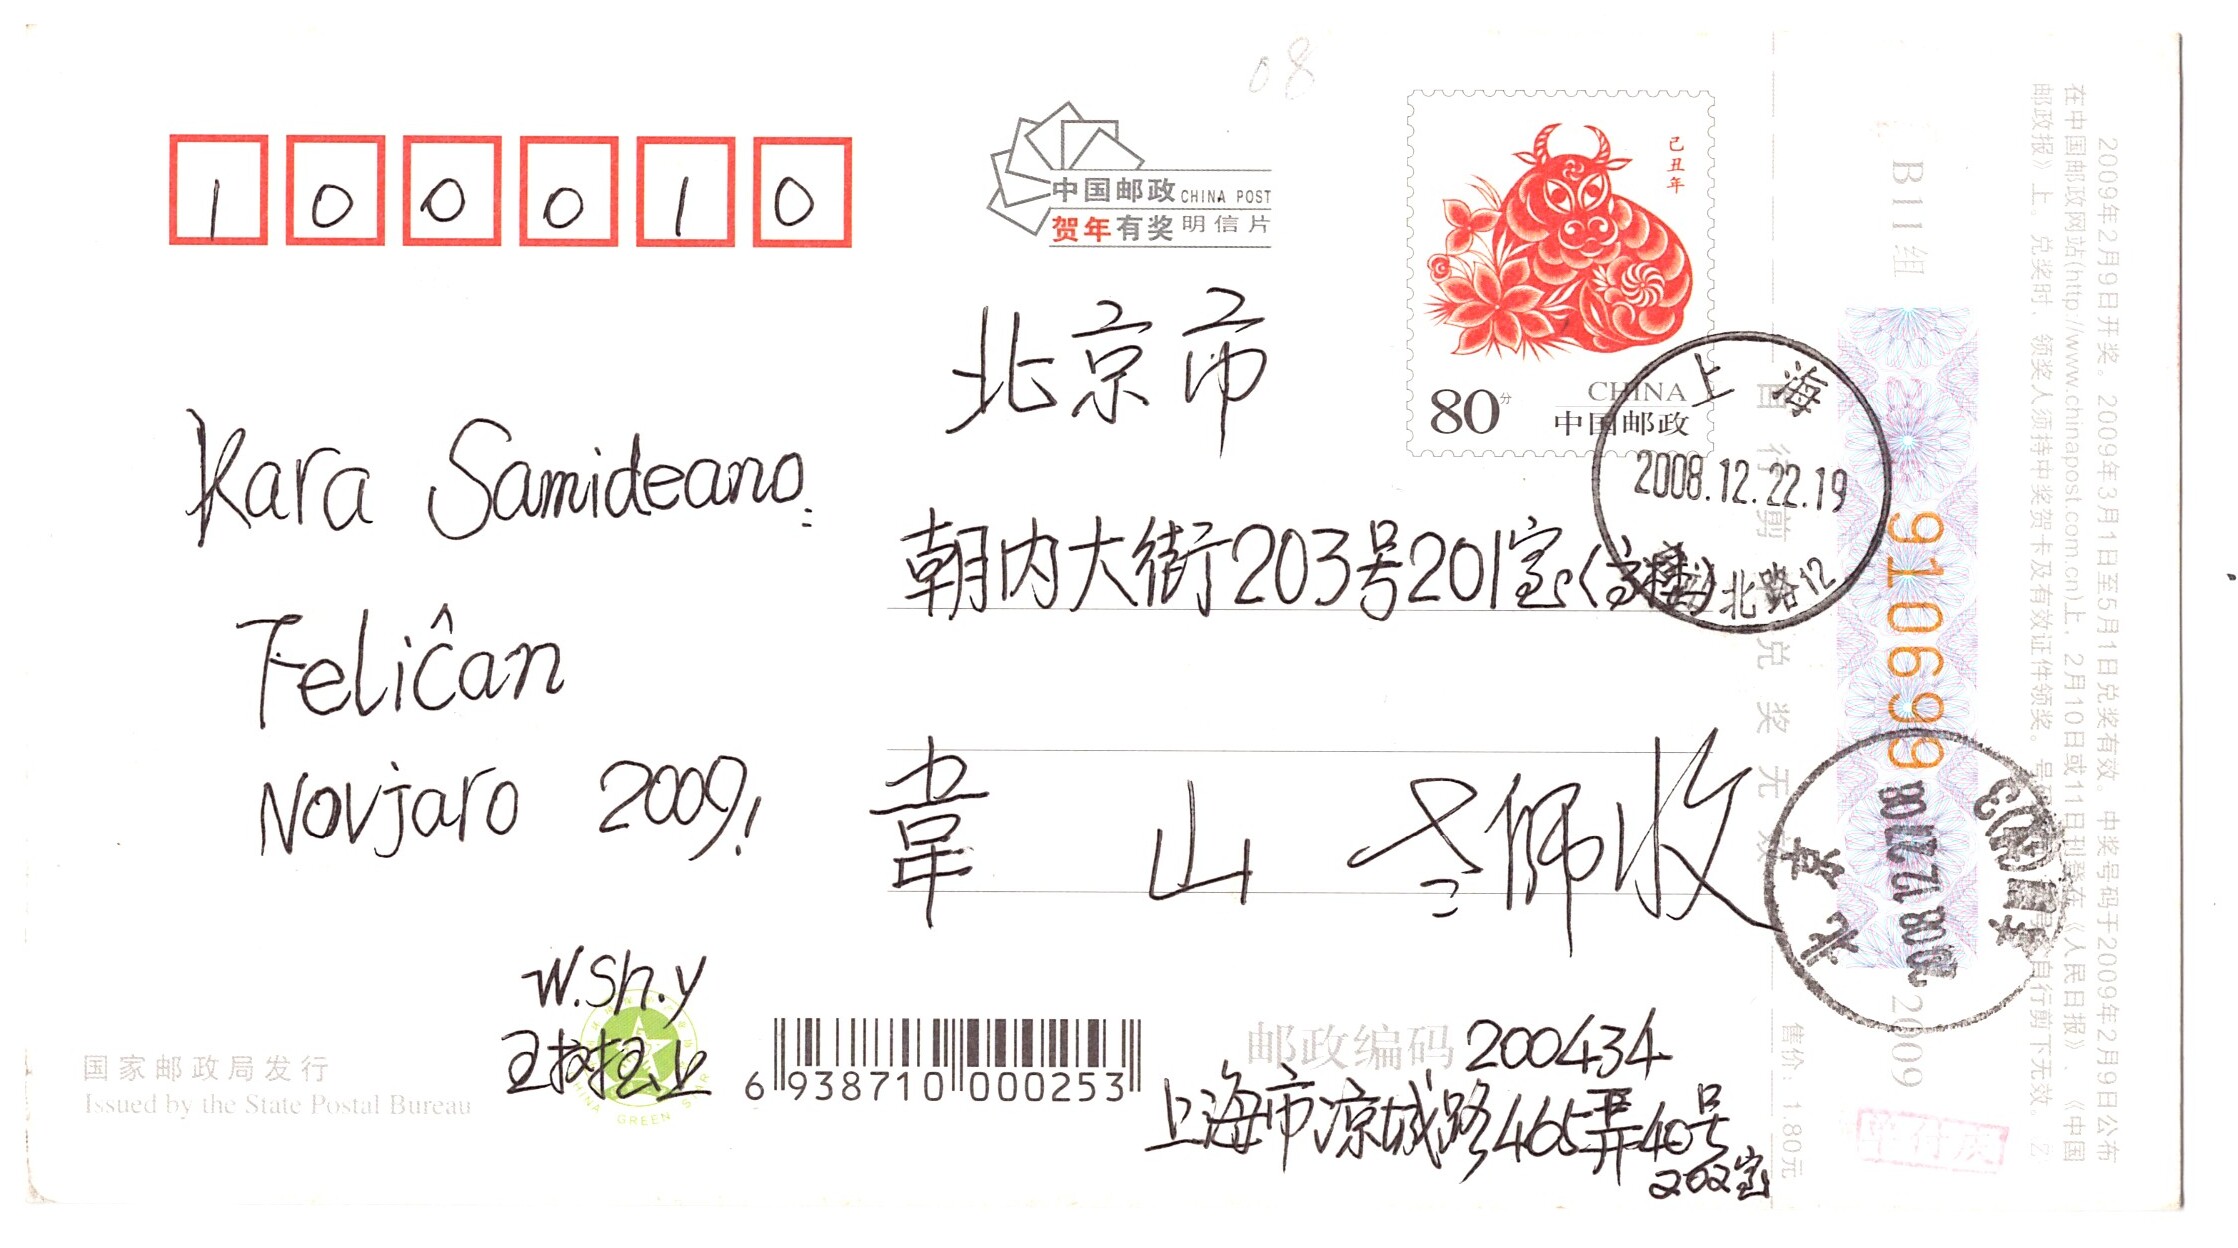 08
100010
中国邮政 CHINA POST
贺年有奖明信片
己丑年
80分
CHINA
中国邮政
上海
2008.12.22.19
北路12
北京市
朝内大街203号201室
Kara Samideano:
Feliĉan
Novjaro 2009!
韋 山 老师收
W.Sh.y
国家邮政局发行
Issued by the State Postal Bureau
CHINA GREEN
6 938710 000253
邮政编码 200434
上海市凉城路465弄40号
202室
自行剪下兑奖无效
售价：1.80元
B11组
910699
2009
北京
2008.12.27.08
2009年2月9日开奖。2009年3月1日至5月1日兑奖有效。中奖号码于2009年2月9日公布
在中国邮政网站(http://www.chinapost.com.cn)上、2月10日或11日刊登在《人民日报》、《中国
邮政报》上。兑奖时，领奖人须持中奖贺卡及有效证件领奖。号码自行剪下无效。